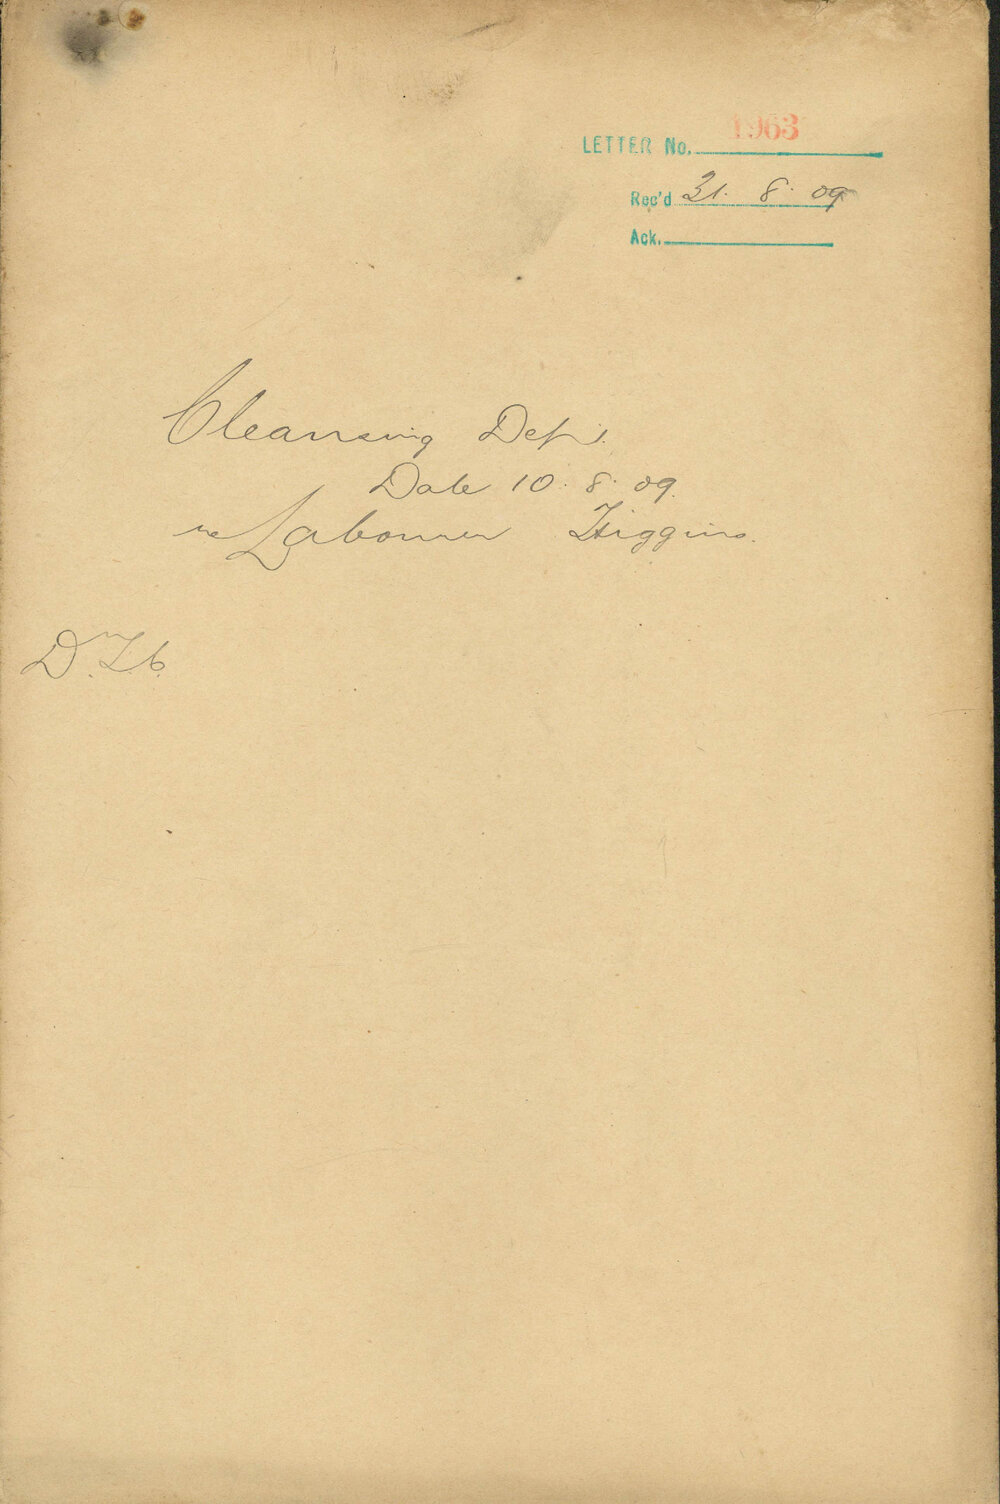 LETTER No. 1963
Rec'd 31. 8. 09
Ack.
Cleansing Dept.
Date 10. 8. 09.
re Labourer Higgins.